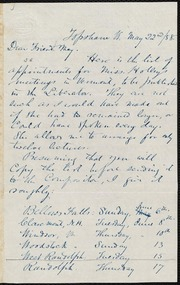 Topsham Vt. May 22nd/58
Dear Friend May,
Here is the list of
appointments for Miss Holley's
meetings in Vermont, to be published
in the Liberator. They are not
such as I could have made out
if she had so remained longer, or
could have spoken every day.
She allows me to arrange for only
twelve lectures.
Presuming that you will
Copy the list before sending it
to the Compositor, I give it
roughly
Bellows Falls, Sunday, June 6th.
Claremont, N.H. Tuesday, June 8th
Windsor, Vt Thursday, 10th
Woodstock Sunday 13
West Randolph Tuesday 15
Randolph Thursday 17